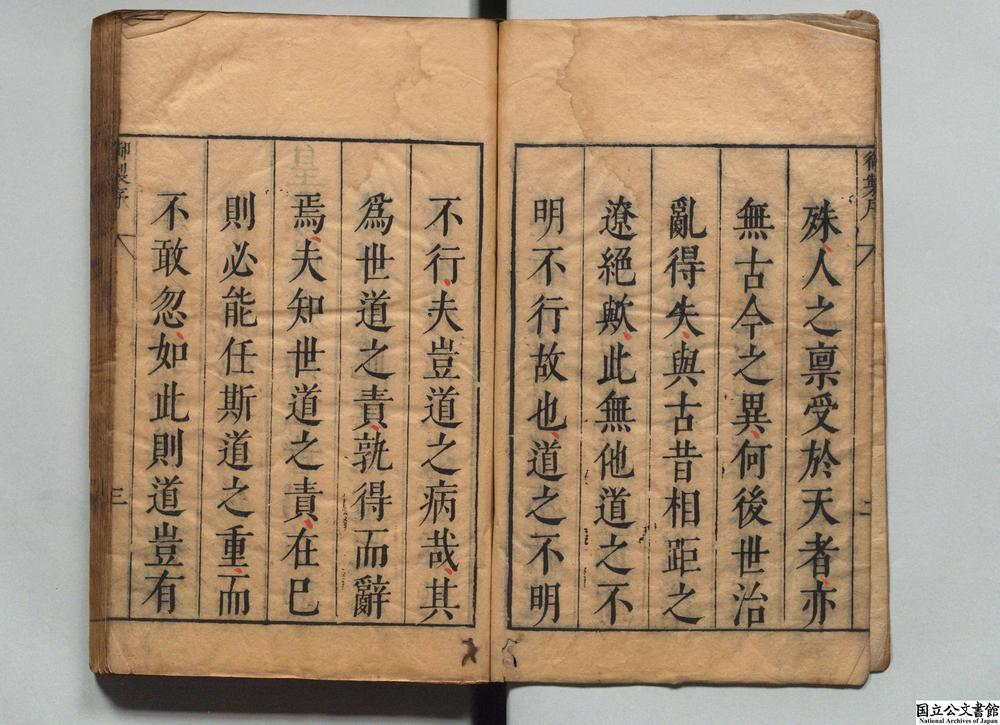 御製序
二
殊人之稟受於天者亦
無古今之異何後世治
亂得失與古昔相距之
遼絕歟此無他道之不
明不行故也道之不明
不行夫豈道之病哉其
爲世道之責孰得而辭
焉夫知世道之責在已
則必能任斯道之重而
不敢忽如此則道豈有
御製序
三
国立公文書館
National Archives of Japan